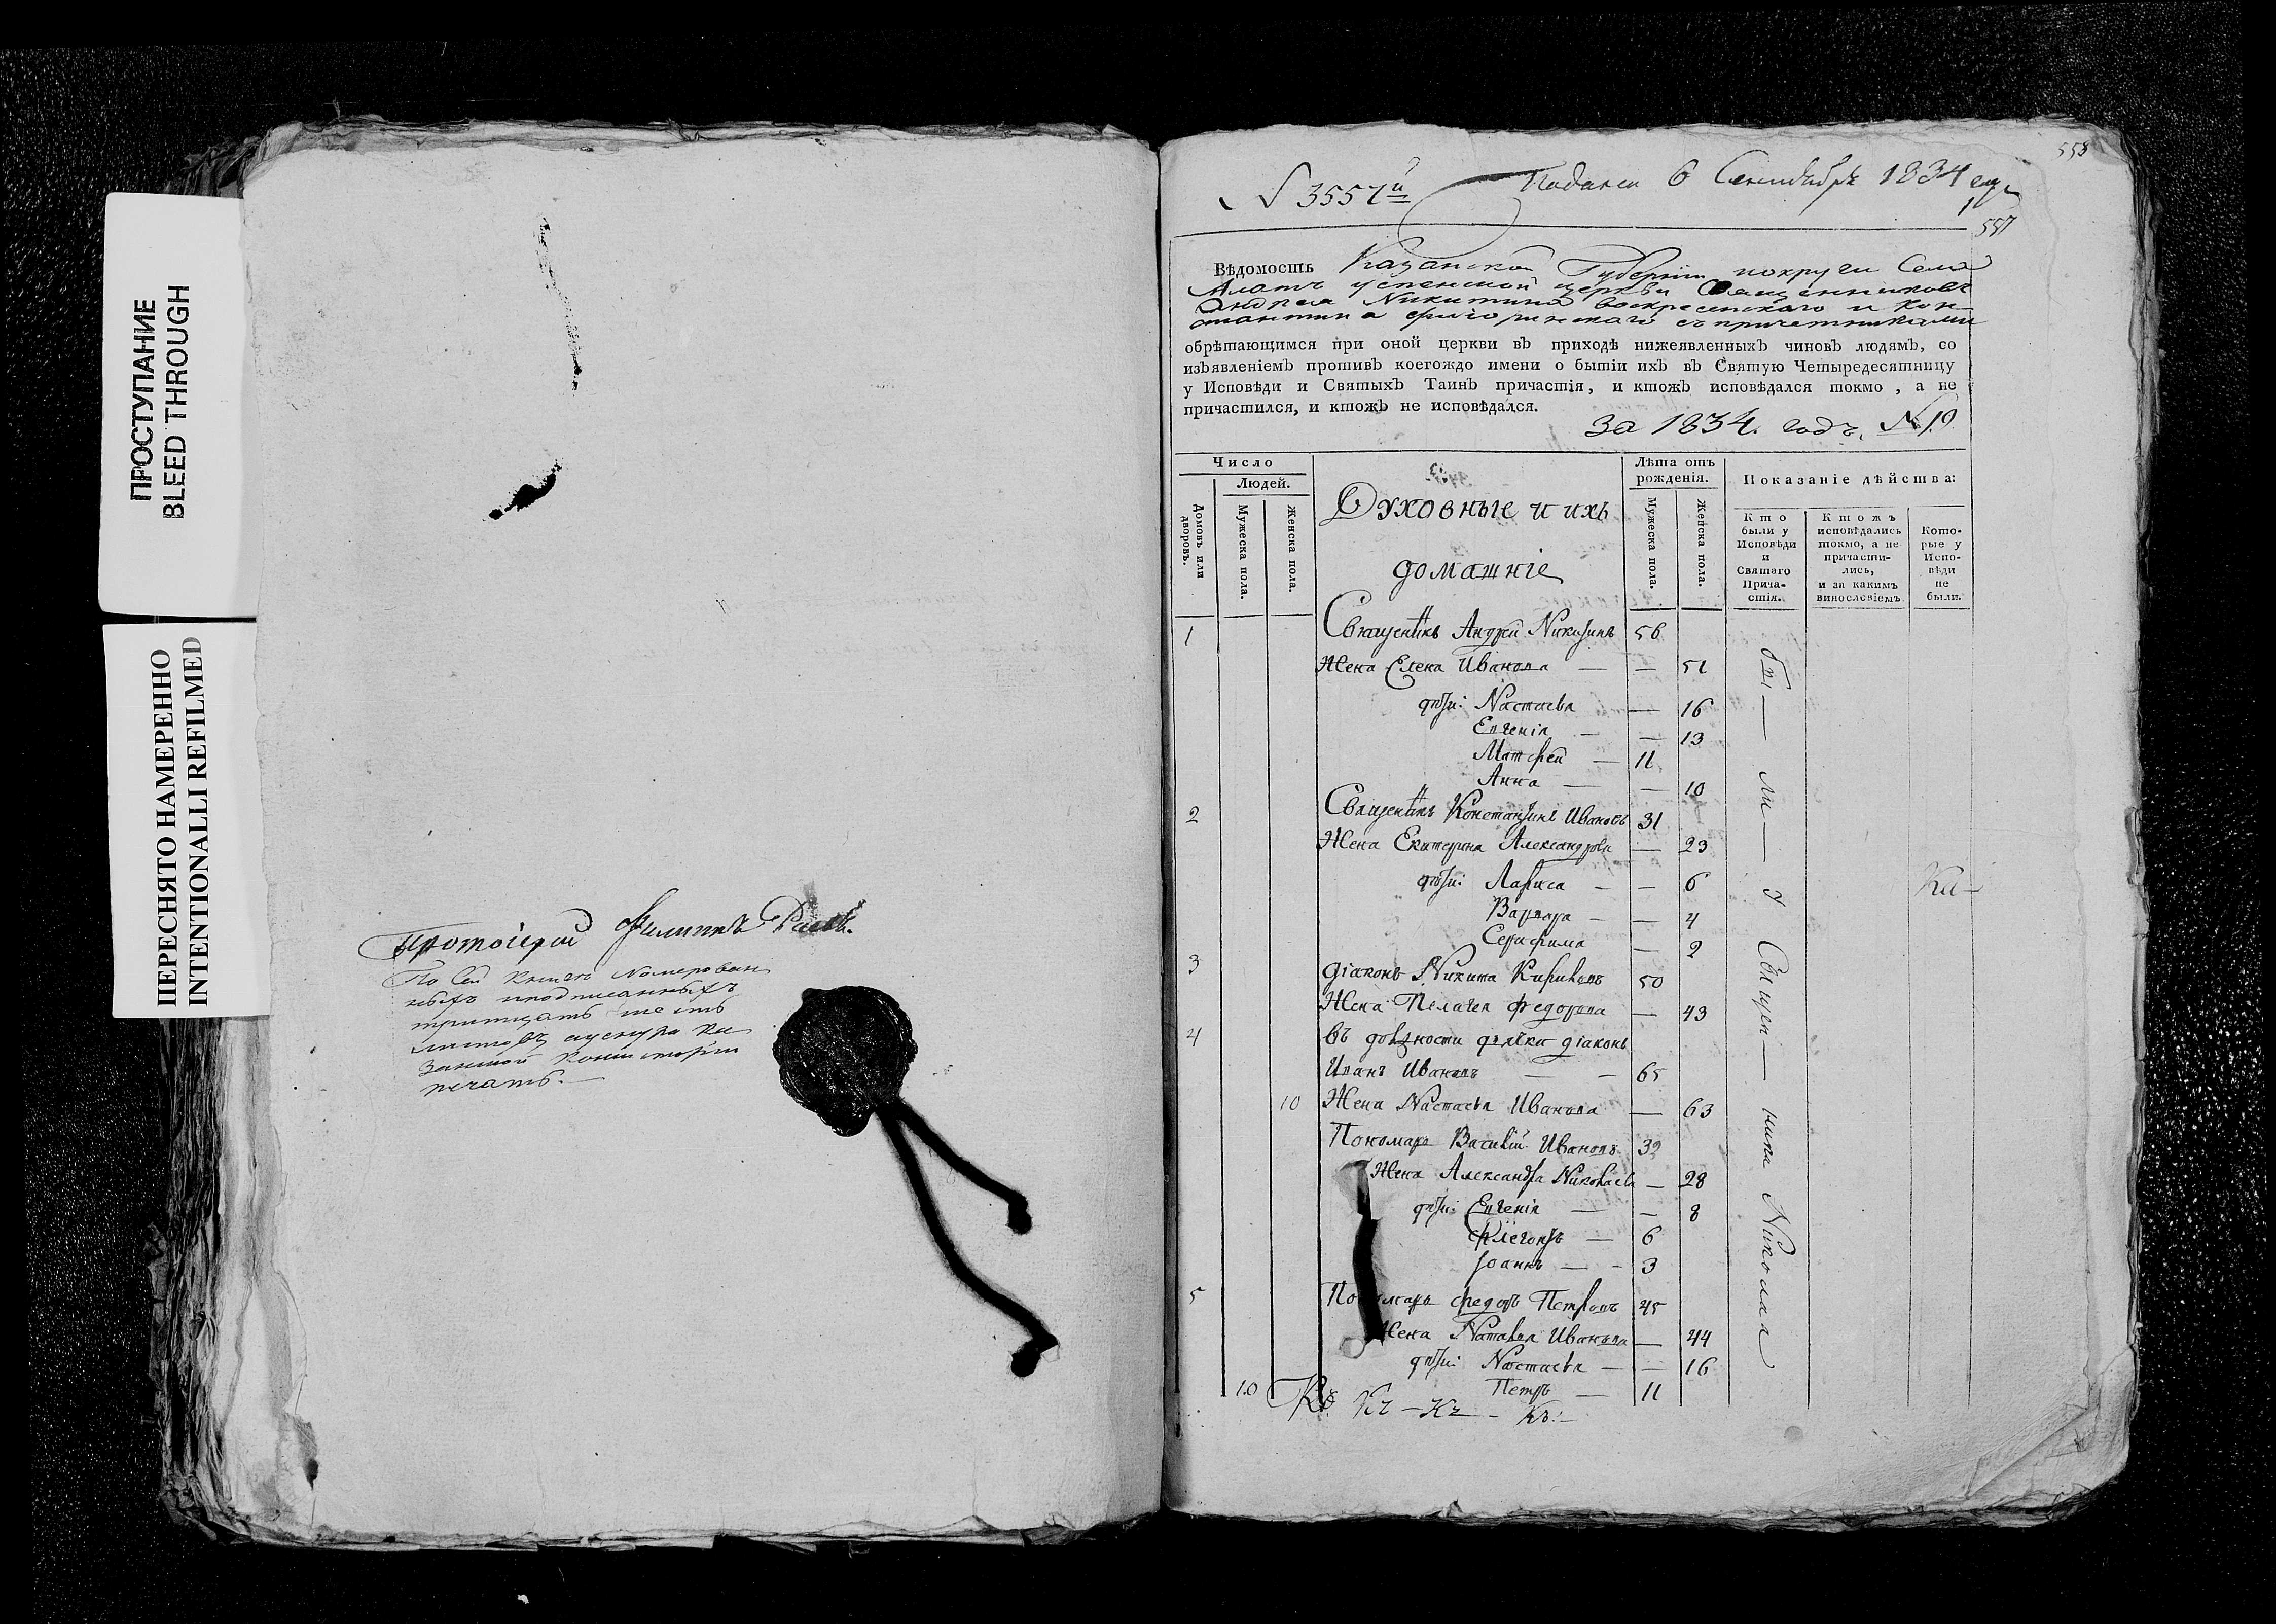 ПРОСТУПАНИЕ
BLEED THROUGH
ПЕРЕСНЯТО НАМЕРЕННО
INTENTIONALLI REFILMED
Протоіерей Филиппъ
По сей книгѣ номерован
ныхъ
тритцать шесть
листовъ
занской Консисторіи
печать.
558
N 3557й Подана 6 Сентября 1834 года
1
557
Вѣдомость Казанской Губерніи округи Села
Алатъ успенской церкви Священниковъ
Андрея Никитина воскресенскаго и Кон-
стантина съ причетниками
обрѣтающимся при оной церкви въ приходѣ нижеявленныхъ чиновъ людямъ, со
изъявленіемъ противъ коегождо имени о бытіи ихъ въ Святую Четыредесятницу
у Исповѣди и Святыхъ Таинъ причастія, и ктожъ исповѣдался токмо, а не
причастился, и ктожъ не исповѣдался.
за 1834. годъ. №10
Число
Людей.
Домовъ или дворовъ.
Мужеска пола.
Женска пола.
Духовные и ихъ
домашніе
Лѣта отъ
рожденія.
Мужеска пола.
Женска пола.
Показаніе дѣйства:
Кто
были у
Исповѣди
и
Святаго
Прича-
стія.
Ктожъ
исповѣдались
токмо, а не
причасти-
лись,
и за какимъ
винословіемъ.
Кото-
рые у
Испо-
вѣди
не
были.
1 Священникъ Андрей Никитинъ 56
Жена Елена Иванова — — 51
дѣти: Настасья — 16
Евгенія — — 13
Матфей — 11
Анна — — 10
2 Священникъ Константинъ Ивановъ 31
Жена Екатерина Александрова — 23
дѣти: Лариса — — 6
Варвара — — 4
Серафима — 2
3 діаконъ Никита Кириловъ 50
Жена Пелагея Федорова — 43
4 въ должности дьячка діаконъ
Иванъ Ивановъ — — 65
10 Жена Настасья Иванова — 63
Пономарь Василій Ивановъ 32
Жена Александра Николаева — 28
дѣти: Евгенія — — 8
Флегонтъ — 6
Іоаннъ — - 3
5 Пономарь Федоръ Петровъ 45
Жена Наталья Иванова — 44
дѣти: Настасья — — 16
10 Петръ — 11
Бы — ли — у Священ — ника Николая
Ка-